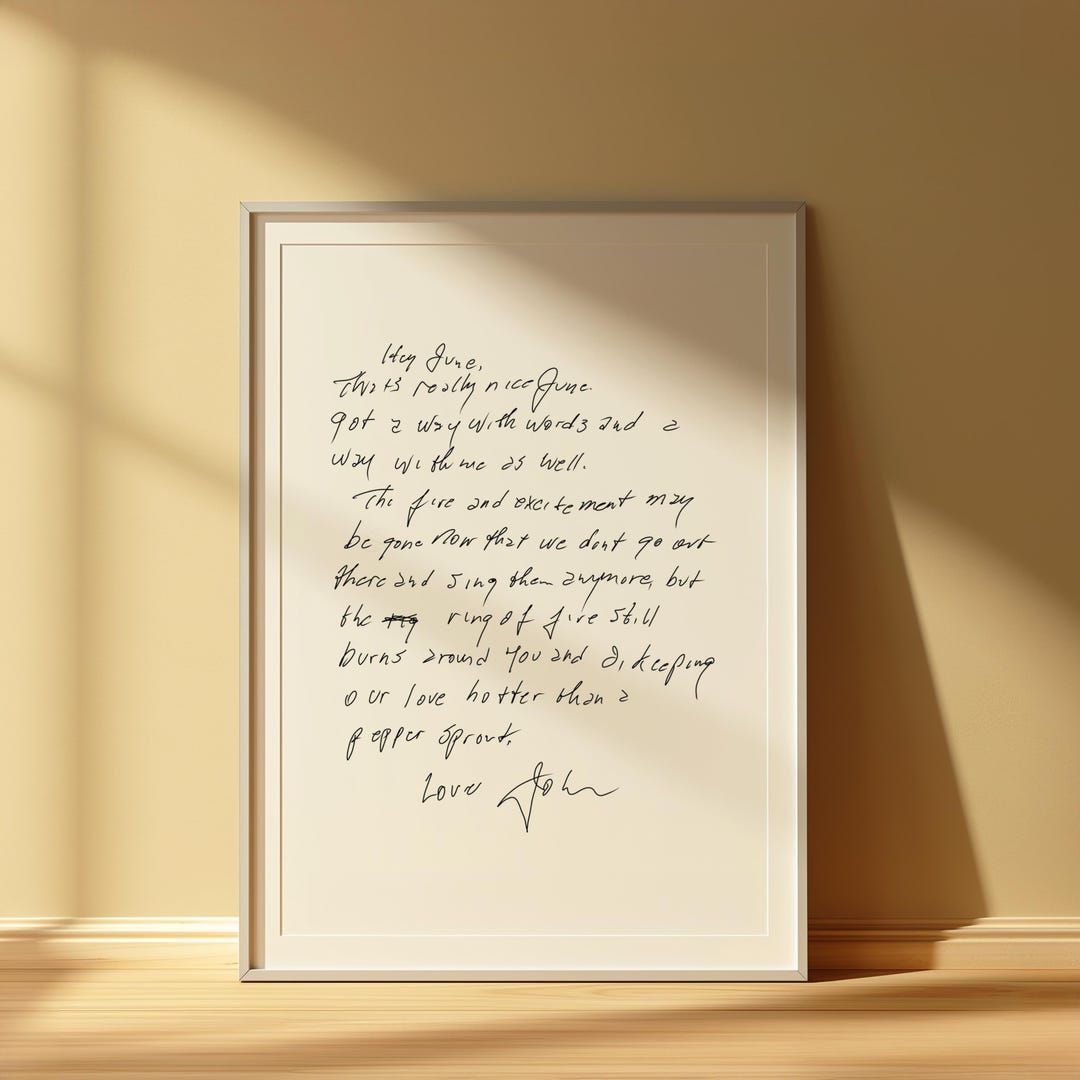 Hey June,
Thats really nice June.
got a way with words and a
way with me as well.
The fire and excitement may
be gone now that we dont go out
there and sing them anymore, but
the ring of fire still
burns around you and I, keeping
our love hotter than a
pepper sprout.
Love John